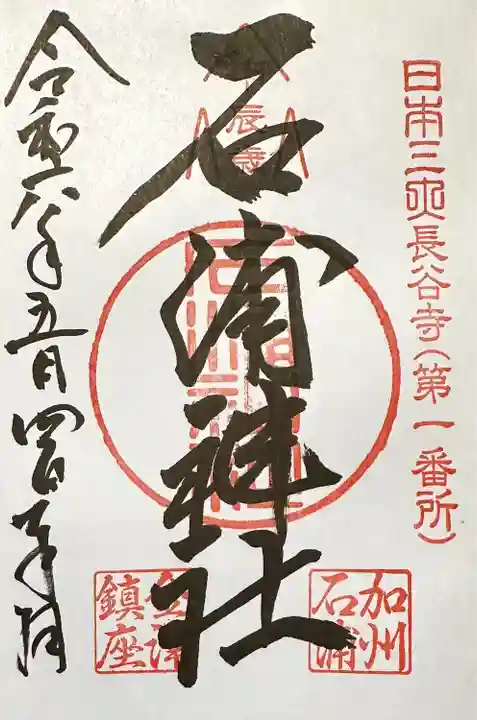 日本三所長谷寺(第一番所)
辰歳
石浦神社
加州
石浦
金澤
鎮座
令和六年五月四日奉拝